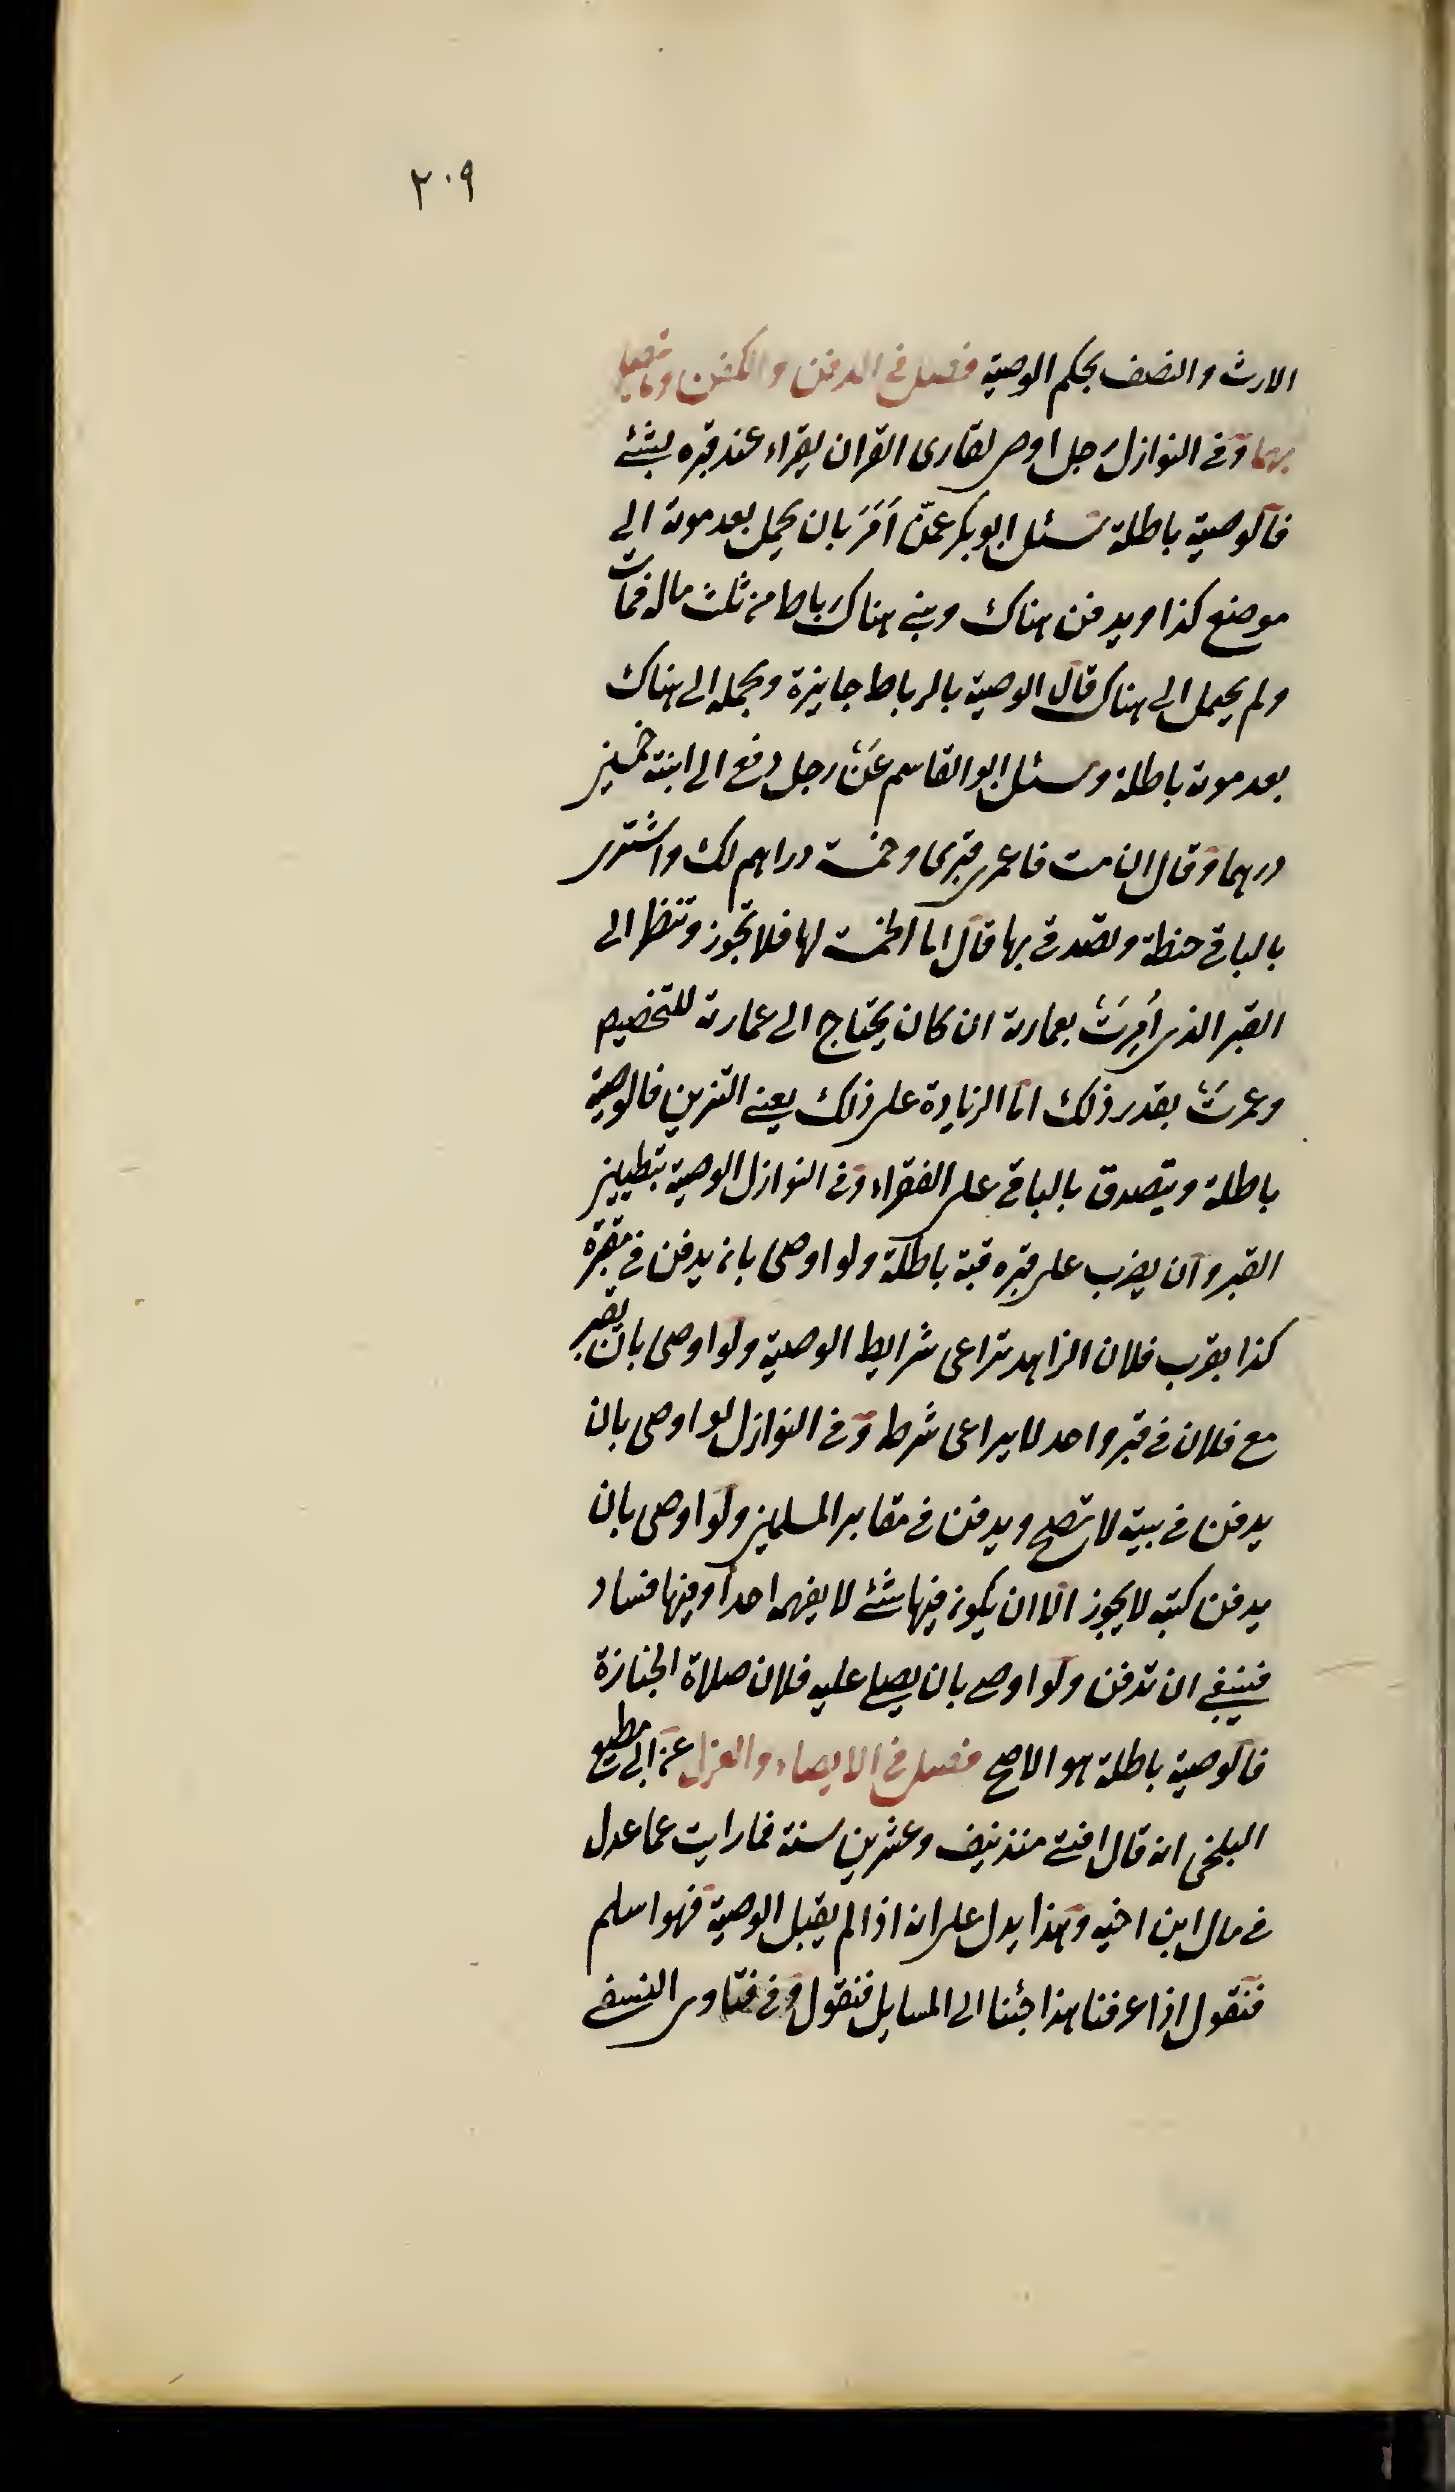 ٢٠٩
الارث والنصف بحكم الوصية فصل فى الدفن والكفن وما يتصل
بهما وفى النوازل رجل اوصى لقارى القران يقراء عند قبره بشئ
فالوصية باطلة سئل ابو بكر عمّن أَمَرَ بان يحمل بعد موته الى
موضع كذا ويدفن هناك وبنى هناك رباط من ثلث ماله فمات
ولم يحمل الى هناك قال الوصية بالرباط جايزة وبحمله الى هناك
بعد موته باطلة وسئل ابو القاسم عَنْ رجل دفع الى ابنته خمسين
درهما وقال ان مت فاعمرى قبرى وخمسة دراهم لك واشترى
بالباقى حنطة وتصدقى بها قال اما الخمسة لها فلا تجوز وتنظر الى
القبر الذى أُمِرَتْ بعمارته ان كان يحتاج الى عمارته للتحصين
وعمرتْ بقدر ذلك امّا الزيادة على ذلك يعنى التزين فالوصية
باطلة ويتصدق بالباقى على الفقراء وفى النوازل الوصية بتطيين
القبر وان يضرب على قبره قبة باطلة ولو اوصى بان يدفن فى مقبرة
كذا بقرب فلان الزاهد تراعى شرايط الوصية ولو اوصى بان يقبر
مع فلان فى قبر واحد لا يراعى شرط وفى النوازل لو اوصى بان
يدفن فى بيته لا تصح ويدفن فى مقابر المسلمين ولو اوصى بان
يدفن كتبه لا يجوز الا ان يكون فيها شئ لا يفهم احدا وفيها فساد
فينبغى ان تدفن ولو اوصى بان يصلى عليه فلان صلاة الجنازة
فالوصية باطلة هو الاصح فصل فى الايصاء والعزل عن ابى مطيع
البلخى انه قال افتى منذ نيف وعشرين سنة فما رايت عما عدل
فى مال ابن اخيه وهذا يدل على انه اذا لم يقبل الوصية فهو اسلم
فنقول اذا عرفنا هذا جئنا الى المسايل فنقول وفى فتاوى النسفى